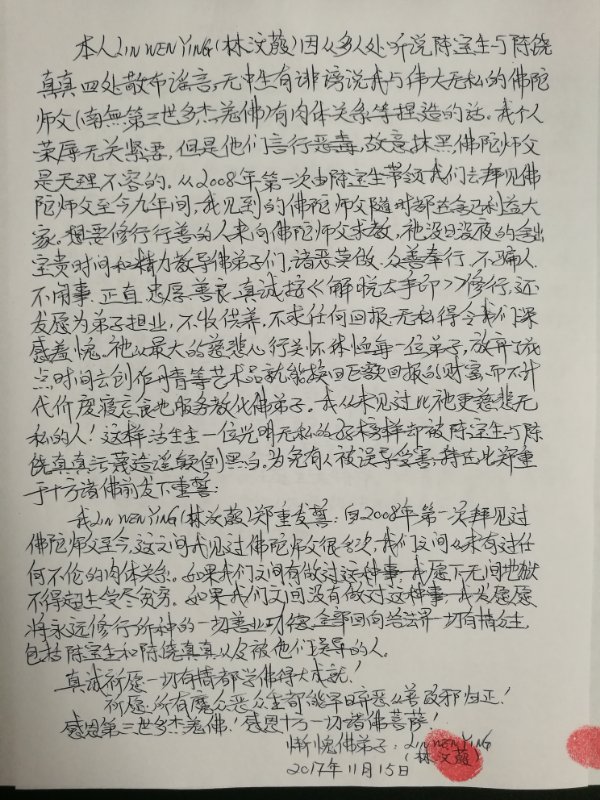 本人LIN WEN YING(林汶蓥)因从多人处听说陈宝生与陈饶
真真四处散布谣言,无中生有诽谤说我与伟大无私的佛陀
师父(南無第三世多杰羌佛)有肉体关系等捏造的话。我个人
荣辱无关紧要,但是他们言行恶毒,故意抹黑佛陀师父
是天理不容的。从2008年第一次由陈宝生带领我们去拜见佛
陀师父至今九年间,我见到的佛陀师父随时都在舍己利益大
家。想要修行行善的人来向佛陀师父求教,祂没日没夜的拿出
宝贵时间和精力教导佛弟子们,诸恶莫做,众善奉行,不骗人
不闹事,正直、忠厚、善良、真诚按《解脱大手印》修行,还
发愿为弟子担业,不收供养,不求任何回报,无私得令我们深
感羞愧。祂以最大的慈悲心行关怀体恤每一位弟子,放弃了花
点时间去创作丹青等艺术品就能换回巨额回报的财富,而不计
代价废寝忘食地服务教化佛弟子。我从未见过比祂更慈悲无
私的人!这样活生生一位光明无私的好榜样却被陈宝生与陈
饶真真污蔑造谣颠倒黑白。为免有人被误导受害,特在此郑重
于十方诸佛前发下重誓:
我LIN WEN YING(林汶蓥)郑重发誓:自2008年第一次拜见过
佛陀师父至今,这之间我见过佛陀师父很多次,我们之间从来有过任
何不伦的肉体关系。如果我们之间有做过这种事,我愿下无间地狱
不得超生受尽贫穷。如果我们之间没有做过这种事,我发愿愿
将永远修行所种的一切善业功德,全部回向给法界一切有情众生,
包括陈宝生和陈饶真真以及被他们误导的人。
真诚祈愿一切有情都学佛得大成就!
祈愿所有魔众恶众生都能早日弃恶从善改邪归正!
感恩第三世多杰羌佛!感恩十方一切诸佛菩萨!
惭愧佛弟子:LIN WEN YING
(林汶蓥)
2017年11月15日